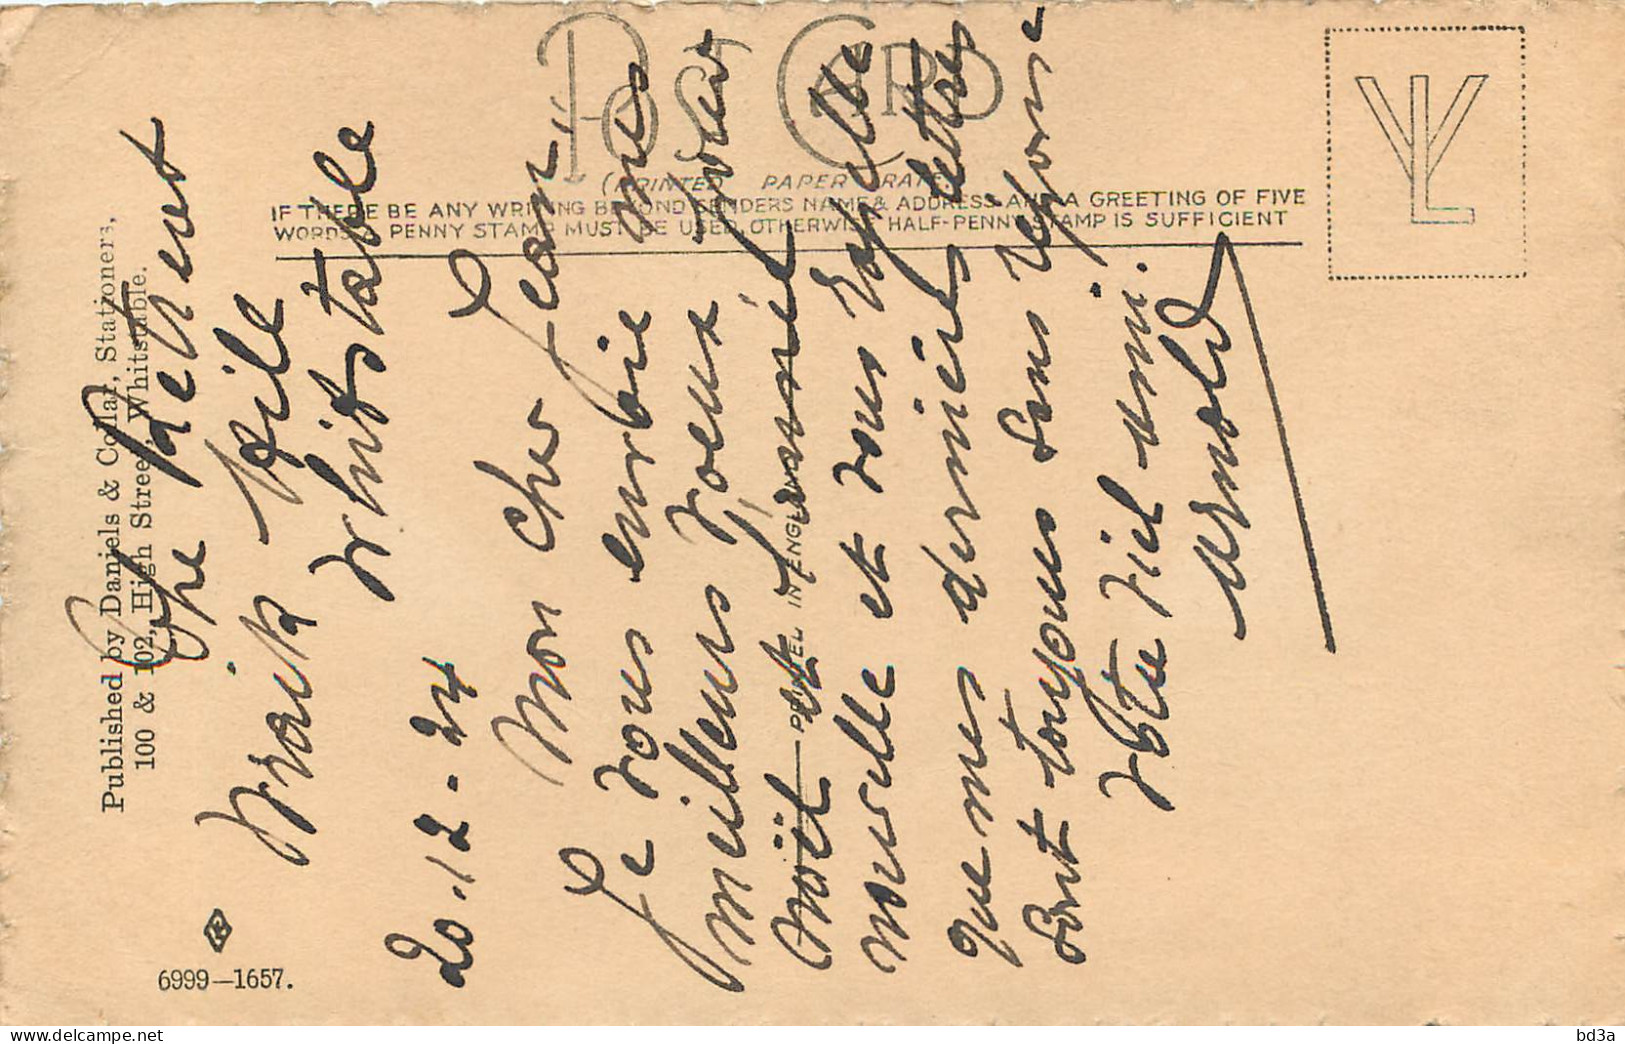 POST CARD
(PRINTED PAPER RATE
IF THERE BE ANY WRITING BEYOND SENDERS NAME & ADDRESS AND A GREETING OF FIVE
WORDS A PENNY STAMP MUST BE USED, OTHERWISE HALF-PENNY STAMP IS SUFFICIENT
Published by Daniels & Collar, Stationers,
100 & 102, High Street, Whitstable.
6999—1657.
The Retreat
Whitstable
20.12.24
Mon cher Jean
Je vous envoie mes
meilleurs voeux pour
Noël et l'année
nouvelle et vous rappelle
que mes dernières lettres
sont toujours sans réponse
Votre vieil ami.
Arnold
bd3a